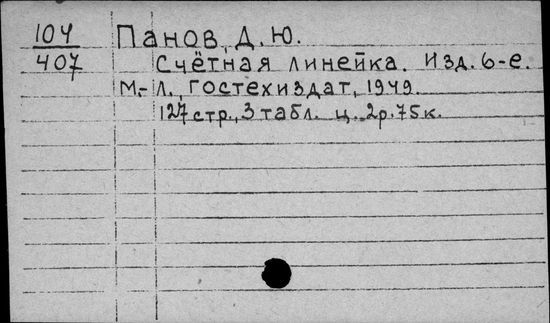 104 Панов, Д. Ю.
407 Счётная линейка. Изд. 6-е.
М.-Л., Гостехиздат, 1949.
127 стр., 3 табл. ц. 2р.75к.